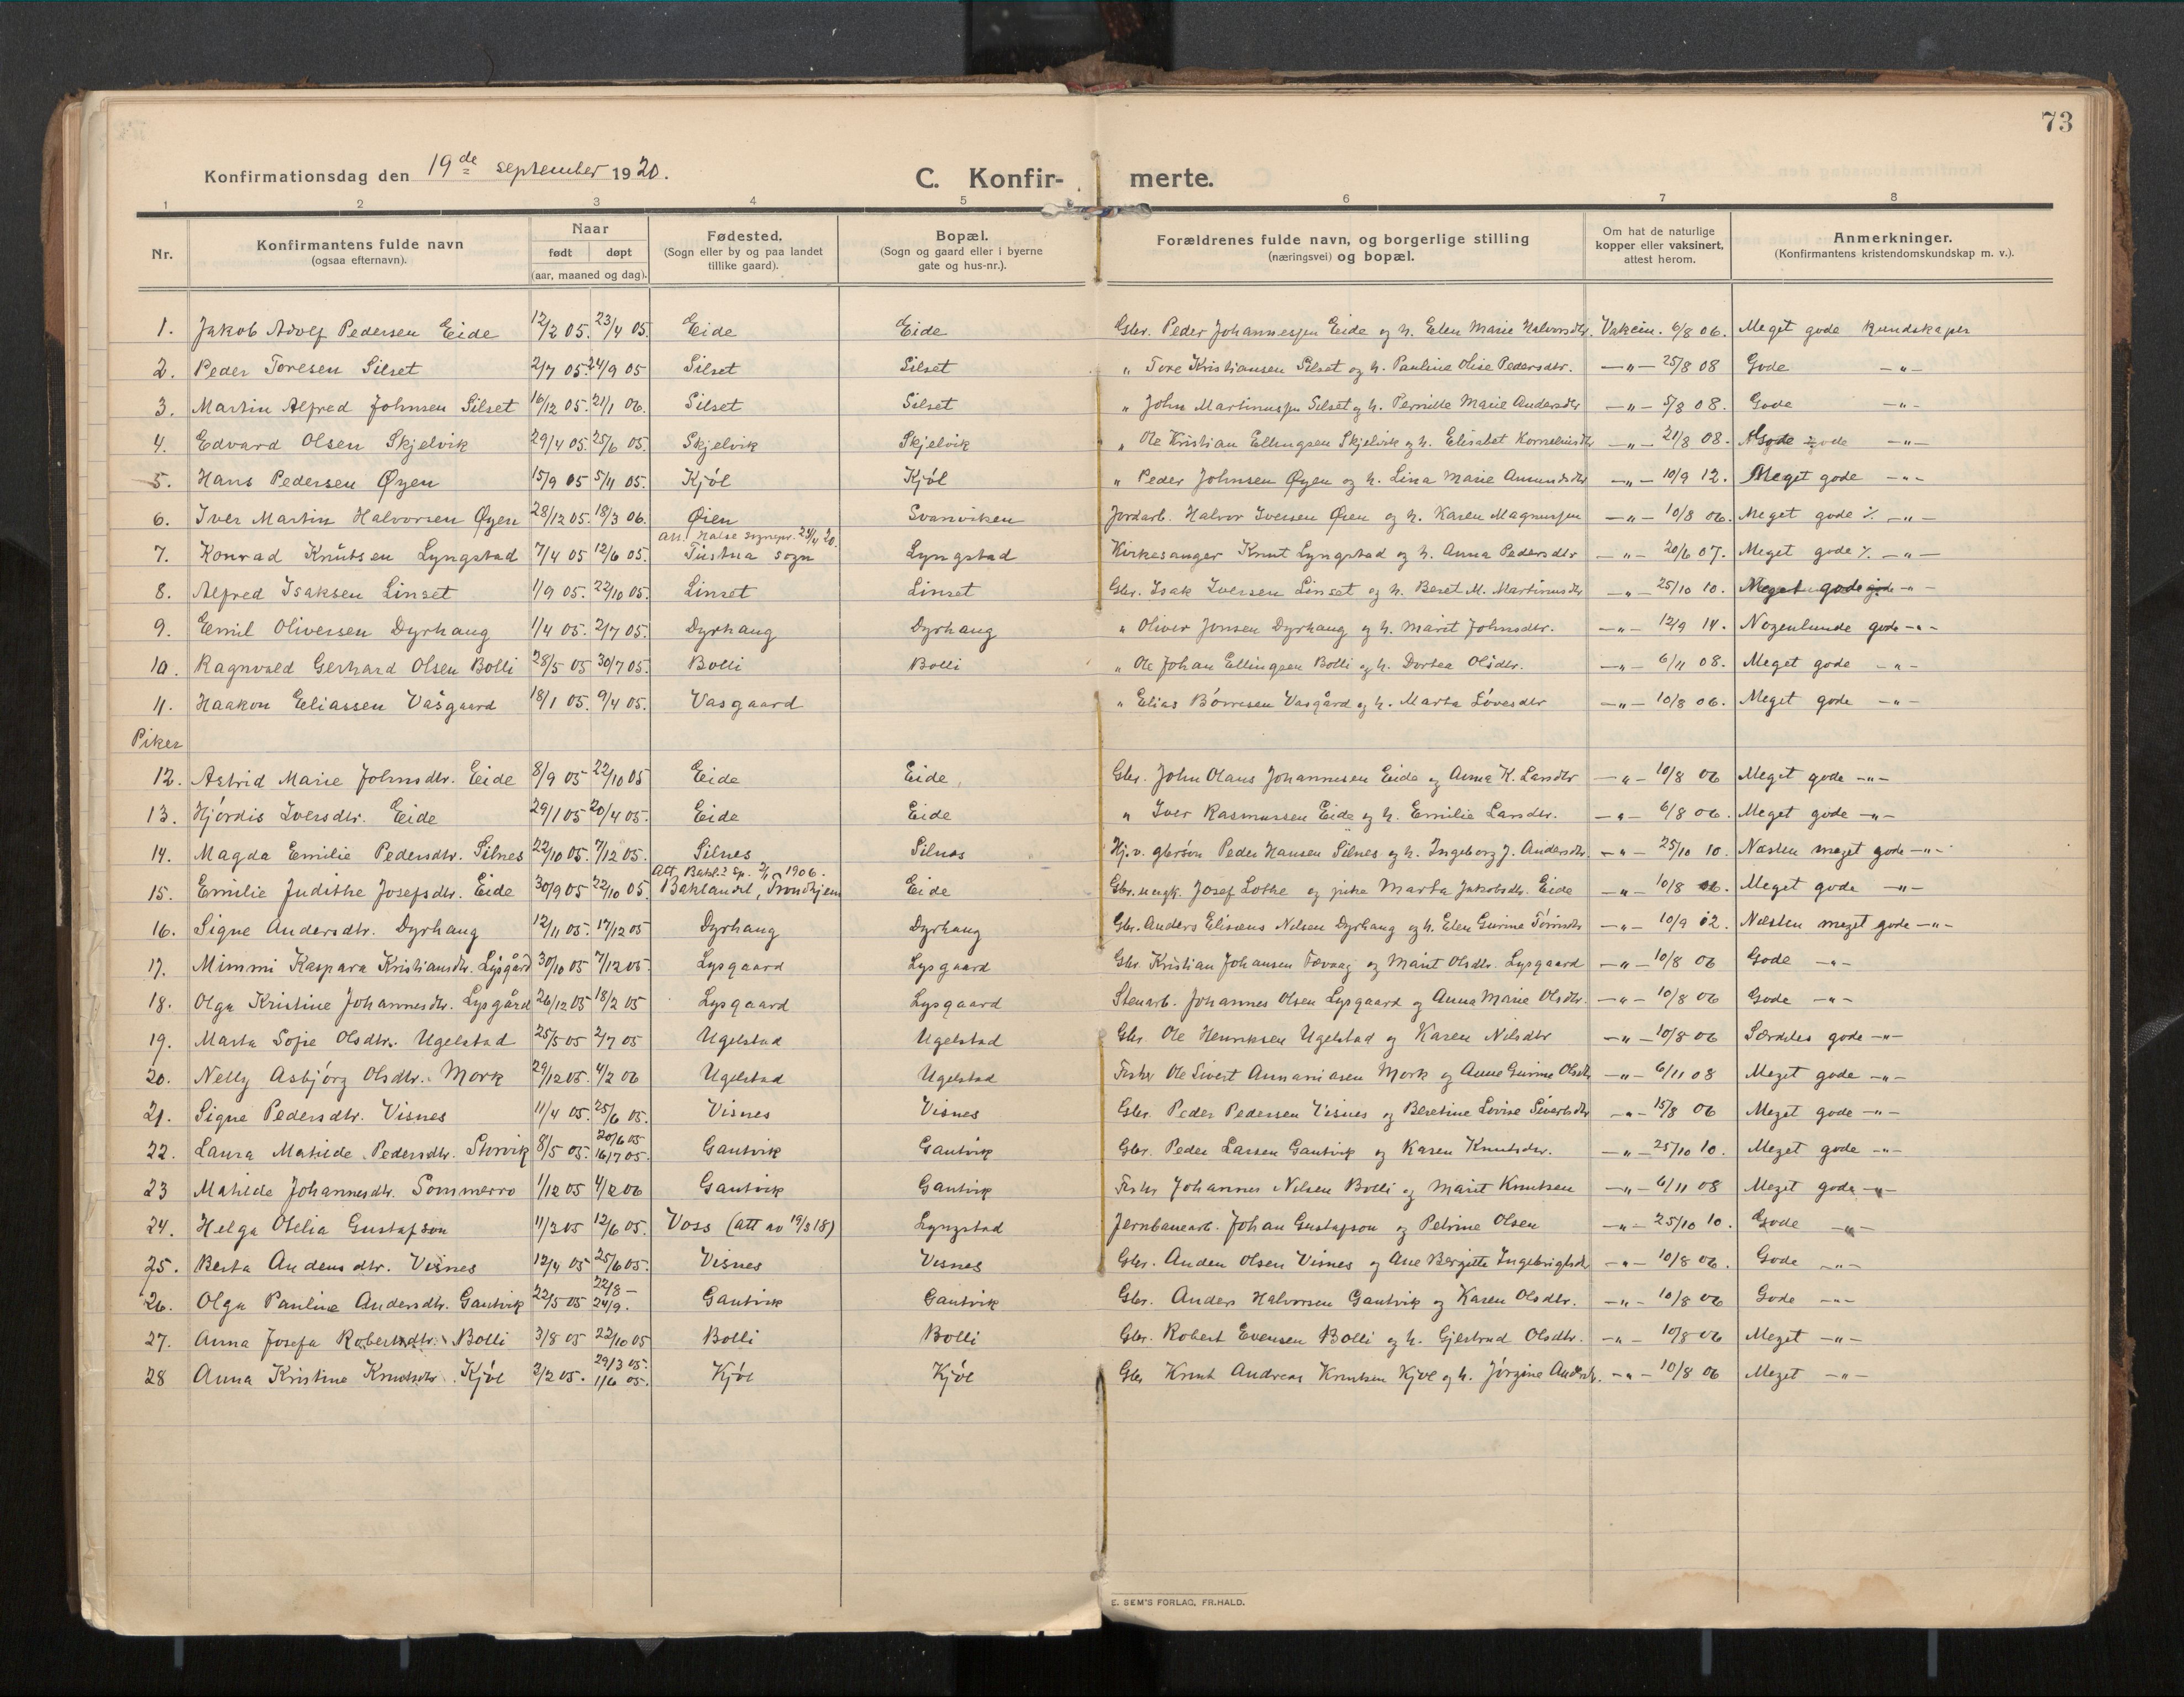 73
Konfirmationsdag den 19de september 1920.
C. Konfir- merte.
1 2 3 4 5 6 7 8
Nr.
Konfirmantens fulde navn
(ogsaa efternavn).
Naar
født døpt
(aar, maaned og dag).
Fødested.
(Sogn eller by og paa landet
tillike gaard).
Bopæl.
(Sogn og gaard eller i byerne
gate og hus-nr.).
Forældrenes fulde navn, og borgerlige stilling
(næringsvei) og bopæl.
Om hat de naturlige
kopper eller vaksinert,
attest herom.
Anmerkninger.
(Konfirmantens kristendomskundskap m. v.).
1. Jakob Adolf Pedersen Eide 12/2 05. 23/4 05. Eide Eide Gbr. Peder Johannessen Eide og h. Elen Marie Halvorsdtr. Vakcin. 6/8 06. Meget gode kundskaper
2. Peder Toresen Silset 2/7 05. 24/9 05 Silset Silset " Tore Kristiansen Silset og h. Pauline Olise Pedersdtr. —"— 25/8 08 Gode —"—
3. Martin Alfred Johnsen Silset 16/12 05. 21/1 06. Silset Silset " John Martinussen Silset og h. Pernille Marie Andersdtr —"— 5/8 08. Gode —"—
4. Edvard Olsen Skjelvik 29/4 05. 25/6 05. Skjelvik Skjelvik " Ole Kristian Ellingsen Skjelvik og h. Elisabet Korneliusdtr —"— 21/8 08. gode —"—
5. Hans Pedersen Øyen 15/9 05 5/11 05. Kjöl Kjöl " Peder Johnsen Øyen og h. Lina Marie Amundsdtr —"— 10/9 12. Meget gode —"—
6. Iver Martin Halvorsen Øyen 28/12 05. 18/3 06. Øien Svanviken Jordarb. Halvor Iversen Øien og h. Karen Magnussen —"— 10/8 06. Meget gode ٪ —"—
Att. Halse sognepr. 23/4 20.
7. Konrad Knutsen Lyngstad 7/4 05 12/6 05. Tustna sogn Lyngstad Kirkesanger Knut Lyngstad og h. Anna Pedersdtr —"— 20/6 07. Meget gode ٪ —"—
8. Alfred Isaksen Linset 1/9 05. 22/10 05. Linset Linset Gbr. Isak Iversen Linset og h. Beret M. Martinusdtr —"— 25/10 10. Meget gode gode —"—
9. Emil Oliversen Dyrhaug 1/4 05. 2/7 05. Dyrhaug Dyrhaug " Oliver Jonsen Dyrhaug og h. Marit Johnsdtr. —"— 12/9 14. Nogenlunde gode —"—
10. Ragnvald Gerhard Olsen Bolli 28/5 05 30/7 05. Bolli Bolli " Ole Johan Ellingsen Bolli og h. Dortea Olsdtr. —"— 6/11 08. Meget gode —"—
11. Haakon Eliassen Vasgaard 18/1 05. 9/4 05. Vasgaard " Elias Börresen Vasgård og h. Marta Lövesdtr —"— 10/8 06. Meget gode —"—
Piker
12. Astrid Marie Johnsdtr. Eide 8/9 05 22/10 05 Eide Eide. Gbr. John Olaus Johannesen Eide og Anna K. Larsdtr —"— 10/8 06 Meget gode —"—
13. Hjördis Iversdtr. Eide 29/1 05 20/4 05. Eide Eide " Iver Rasmussen Eide og h. Emilie Larsdtr. —"— 6/8 06. Meget gode —"—
14. Magda Emilie Pedersdtr. Silnes 22/10 05. 7/12 05. Silnes Silnes Hj.v. gbrsön Peder Hansen Silnes og h. Ingeborg J. Andersdtr. —"— 25/10 10. Næsten meget gode —"—
Att. Bakl. sp. 1906.
15. Emilie Judithe Josefsdtr. Eide 30/9 05 22/10 05. Baklandet, Trondhjem Eide Gbr. ungk. Josef Lothe og pike Marta Jakobsdtr. Eide —"— 10/8 06. Meget gode —"—
16. Signe Andersdtr. Dyrhaug 12/11 05. 17/12 05 Dyrhaug Dyrhaug Gbr. Anders Elisæus Nilsen Dyrhaug og h. Elen Gurine —"— 10/9 12. Næsten meget gode —"—
17. Mimmi Kaspara Kristiansdtr. Lysgård 30/10 05 7/12 05 Lysgaard Lysgaard Gbr. Kristian Johansen og Marit Olsdtr. Lysgaard —"— 10/8 06 Gode —"—
18. Olga Kristine Johannesdtr. Lysgård 26/12 05 18/2 05 Lysgaard Lysgaard Stenarb. Johannes Olsen Lysgaard og Anna Marie Olsdtr. —"— 10/8 06 Gode —"—
19. Marta Sofie Olsdtr. Ugelstad 25/5 05 2/7 05 Ugelstad Ugelstad Gbr. Ole Henriksen Ugelstad og Karen Nilsdtr —"— 10/8 06 Særdeles gode —"—
20. Nelly Asbjörg Olsdtr. Mork 29/12 05. 4/2 06 Ugelstad Ugelstad Fisker Ole Sivert Annaniasen Mork og Anne Gurine Olsdtr —"— 6/11 08 Meget gode —"—
21. Signe Pedersdtr. Visnes 11/4 05. 25/6 05. Visnes Visnes Gbr. Peder Pedersen Visnes og Beretine Lovise Sivertsdtr —"— 15/8 06 Meget gode —"—
22. Laura Matilde Pedersdtr. Storvik 8/5 05. 20/6 05 16/7 05. Gautvik Gautvik Gbr. Peder Larsen Gautvik og Karen Knutsdtr. —"— 25/10 10. Meget gode —"—
23 Matilde Johannesdtr. Sommerro 1/12 05 4/2 06 Gautvik Gautvik Fisker Johannes Nilsen Bolli og Marit Knutsen —"— 6/11 08 Meget gode —"—
24. Helga Otelia Gustafson 11/2 05 12/6 05. Voss (att av 19/3 18) Lyngstad Jernbanearb. Johan Gustafson og Petrine Olsen —"— 25/10 10. Gode —"—
25. Berta Andersdtr. Visnes 12/4 05 25/6 05. Visnes Visnes Gbr. Anders Olsen Visnes og Ane Bergitte Ingebrigtsdtr —"— 10/8 06. Gode —"—
26. Olga Pauline Andersdtr. Gautvik 22/5 05 22/8 — 24/9. Gautvik Gautvik Gbr. Anders Halvorsen Gautvik og Karen Olsdtr. —"— 10/8 06 Gode —"—
27. Anna Josefa Robertsdtr. Bolli 3/8 05 22/10 05 Bolli Bolli Gbr. Robert Evensen Bolli og h. Gjertrud Olsdtr. —"— 10/8 06 Meget —"—
28 Anna Kristine Knutsdtr. Kjöl 3/2 05. 29/3 05. 1/6 05. Kjöl Kjöl Gbr Knut Andreas Knutsen Kjöl og h. Jörgine Andersdtr. —"— 10/8 06 Meget —"—
E. SEM'S FORLAG, FR.HALD.